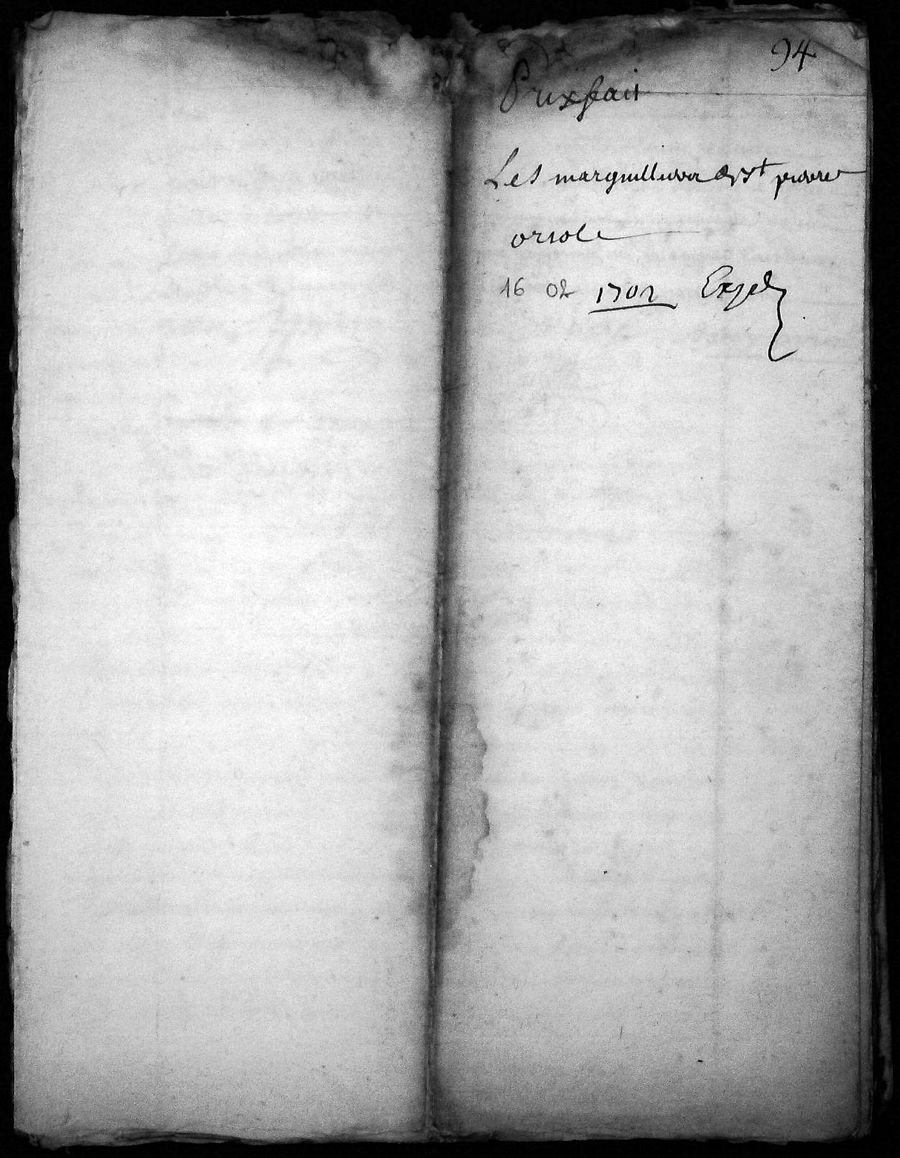 94
Prixfait
Les marguilliers de St pierre
oriole
16 02 1702 Exped